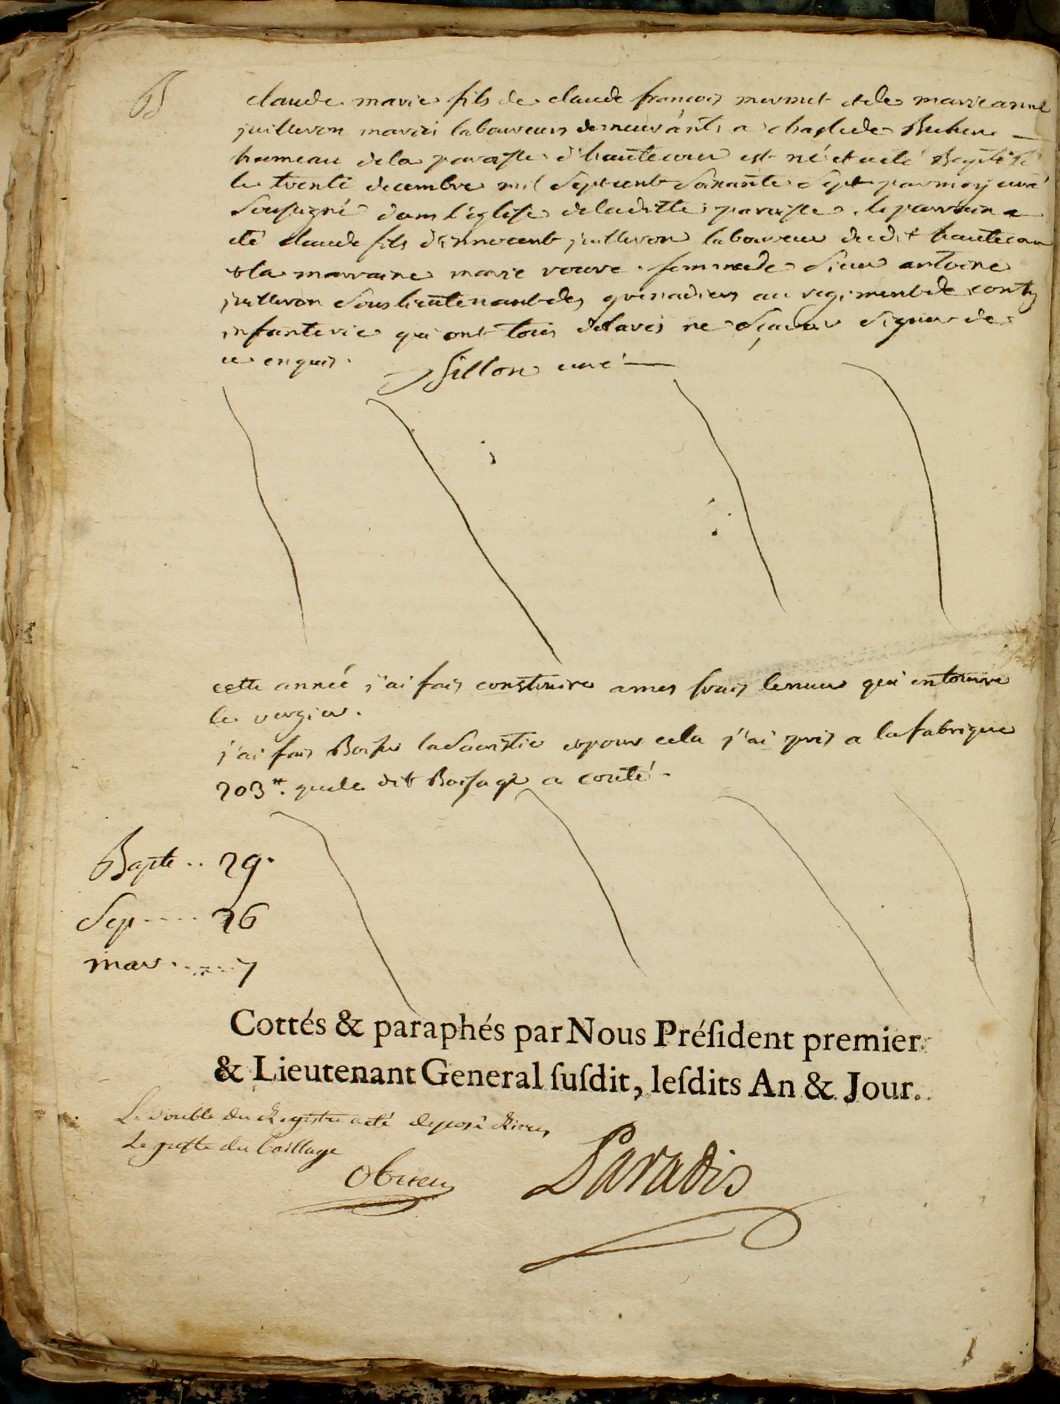 B
claude marie fils de claude francois mermet et de marie anne
juilleron mariés laboureurs demeurants a
hameau de la paroisse d'hautecour est né et a eté Baptisé
le trente decembre mil sept cent soixante sept par moy curé
soussigné dans l'église de laditte paroisse. le parrain a
eté claude fils d'innocent juilleron laboureur dudit hautecour
& la marraine marie femme de sieur antoine
juilleron souslieutenant des grenadiers au regiment de conty
infanterie qui ont tous declarés ne sçavoir signer de
ce enquis.
Sillon curé
cette année j'ai fais construire a mes frais le mur qui entoure
le vergier.
j'ai fais Boiser la Sacristie et pour cela j'ai pris a la fabrique
203#. que le dit Boisage a couté.
Bapte .. 29.
Sep..... 26
mar..... 7
Cottés & paraphés par Nous Préſident premier
& Lieutenant General ſuſdit, leſdits An & Jour.
Le double du Registre a été deposé
Le greffe du Baillage
Obrieu
Paradis